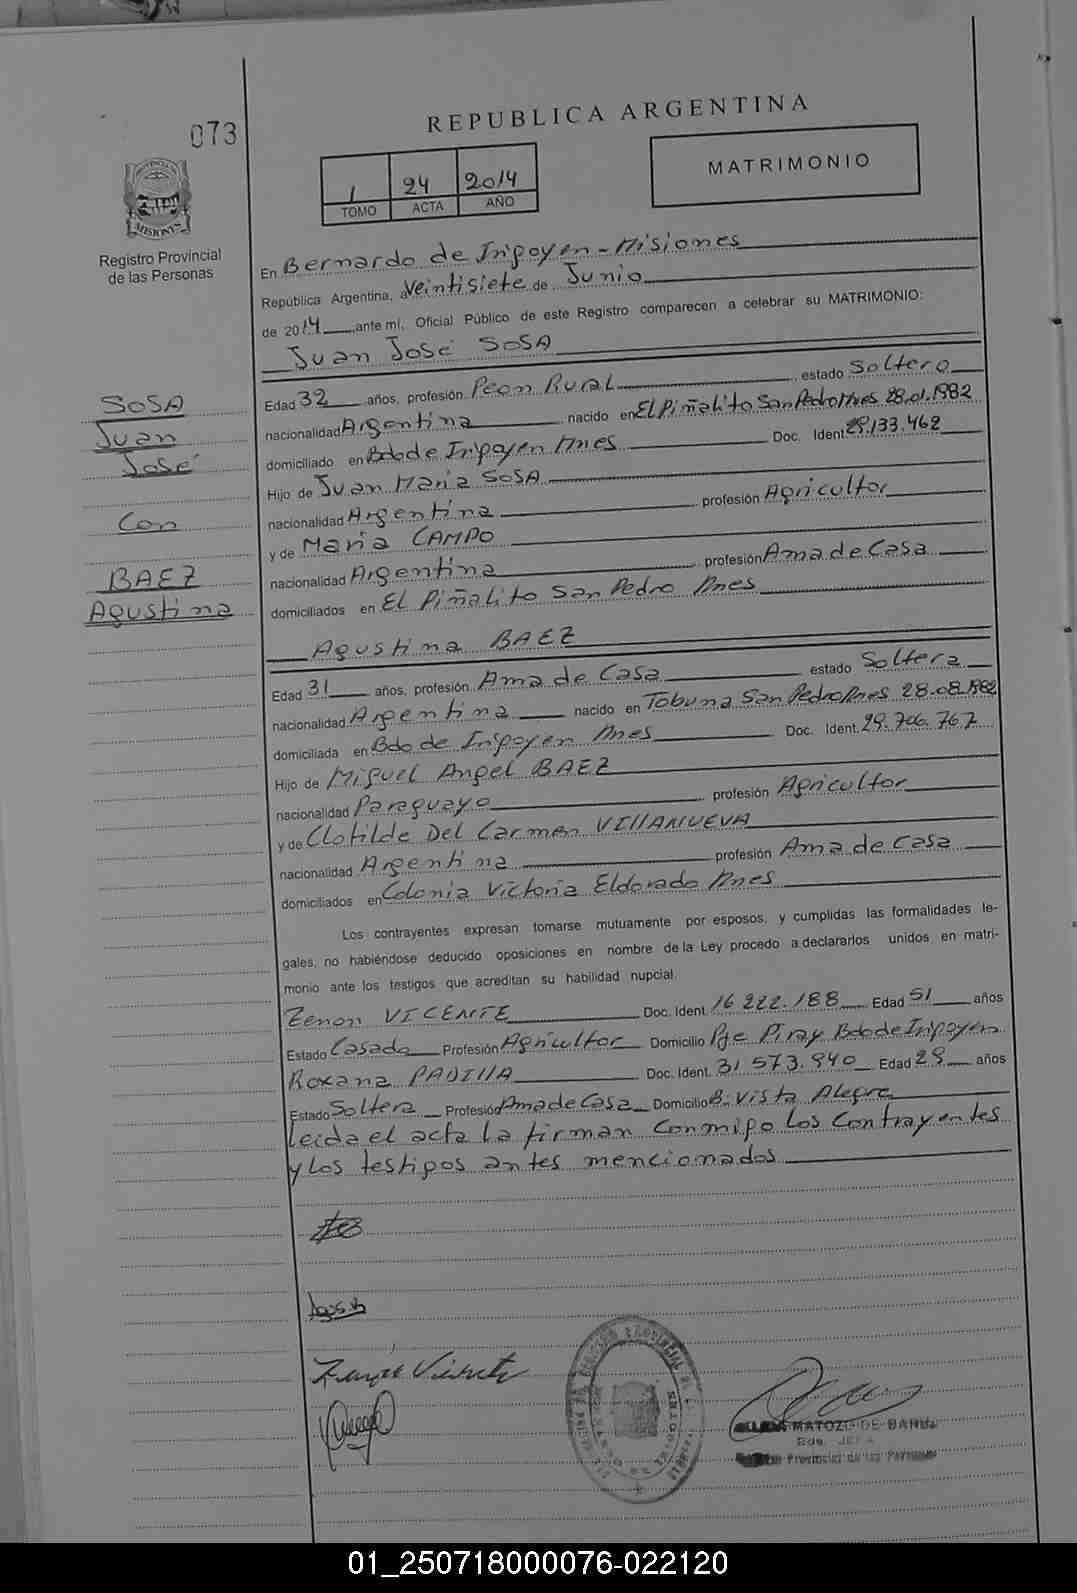 073
REPUBLICA ARGENTINA
1 24 2014
TOMO ACTA AÑO
MATRIMONIO
PROVINCIA DE
MISIONES
Registro Provincial
de las Personas
En Bernardo de Irigoyen - Misiones
República Argentina, a Veintisiete de Junio
de 2014 ante mí, Oficial Público de este Registro comparecen a celebrar su MATRIMONIO:
Juan José SOSA
Edad 32 años, profesión Peon Rural estado Soltero
nacionalidad Argentina nacido en El Piñalito San Pedro Mnes 28.01.1982
domiciliado en Bdo de Irigoyen Mnes Doc. Ident. 29.133.462
Hijo de Juan Maria SOSA
nacionalidad Argentina profesión Agricultor
y de Maria CAMPO
nacionalidad Argentina profesión Ama de Casa
domiciliados en El Piñalito San Pedro Mnes
SOSA
Juan
José
Con
BAEZ
Agustina
Agustina BAEZ
Edad 31 años, profesión Ama de Casa estado Soltera
nacionalidad Argentina nacido en Tobuna San Pedro Mnes 28.08.1982
domiciliada en Bdo de Irigoyen Mnes Doc. Ident. 29.706.767
Hijo de Miguel Angel BAEZ
nacionalidad Paraguayo profesión Agricultor
y de Clotilde Del Carmen VIllANUEVA
nacionalidad Argentina profesión Ama de Casa
domiciliados en Colonia Victoria Eldorado Mnes
Los contrayentes expresan tomarse mutuamente por esposos, y cumplidas las formalidades le-
gales, no habiéndose deducido oposiciones en nombre de la Ley procedo a declararlos unidos en matri-
monio ante los testigos que acreditan su habilidad nupcial
Zenon VICENTE Doc. Ident. 16.222.188 Edad 51 años
Estado Casado Profesión Agricultor Domicilio Pje Piray Bdo de Irigoyen
Roxana PADIllA Doc. Ident. 31.573.940 Edad 29 años
Estado Soltera Profesión Ama de Casa Domicilio B: Vista Alegre
Leida el acta la firman conmigo los Contrayentes
y los testigos antes mencionados
MATOZO DE BAHR
JEFA
Provincial de las Personas
01_250718000076-022120